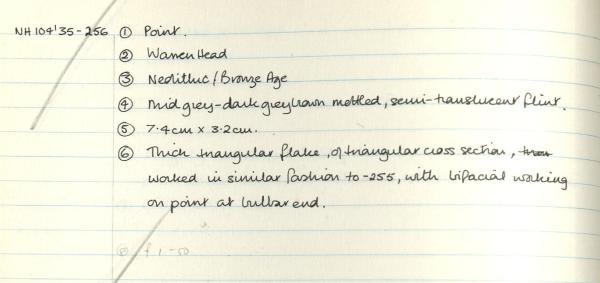 NH 104'35-256 ① Point.
② Warren Head
③ Neolithic / Bronze Age
④ Mid grey-dark grey brown mottled, semi-translucent flint.
⑤ 7.4cm x 3.2cm.
⑥ Thick triangular flake, of triangular cross section,
worked in similar fashion to -255, with bifacial working
on point at bulbar end.
⑧ £1-50